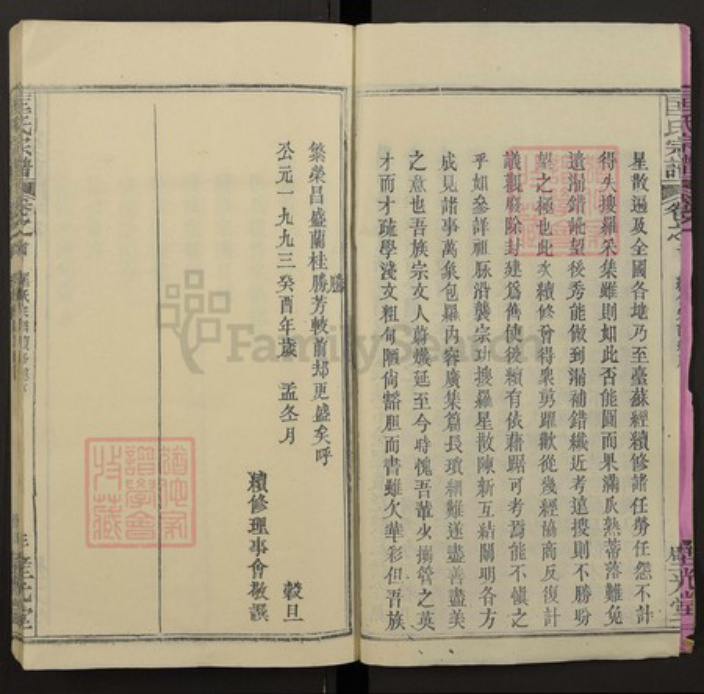 星散遍及全國各地乃至臺蘇經續修諸任勞任怨不計
得失搜羅采集雖則如此否能圓而果滿瓜熟蒂落難免
遺漏錯訛望後秀能做到漏補錯纖近考遠搜則不勝盼
望之極也此次續修曾得衆男躍歡從幾經協商反復計
議觀廢除封建爲舊使後賴有依藉踞可考焉能不慎之
乎如參詳祖脉沿襲宗功搜羅星散陳新互結闡明各方
成見諸事萬象包羅內容廣集篇長瑣細難遂盡善盡美
之意也吾族宗文人蔚熾延至今時愧吾輩少搦管之英
才而才疏學淺文粗句陋尙豁胆而書雖欠華彩但吾族
繁榮昌盛蘭桂勝芳較前却更盛矣呼
勝
公元一九九三癸酉年歲 孟冬月
穀旦
續修理事會敬譔
匡氏宗譜
卷之首
三
FamilySearch